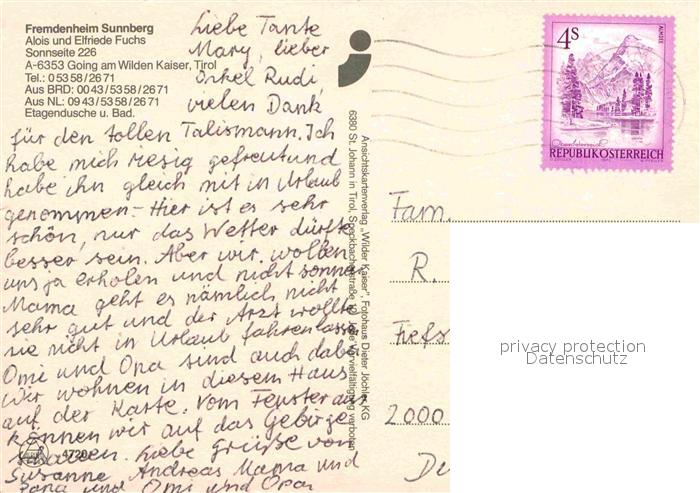 Fremdenheim Sunnberg
Alois und Elfriede Fuchs
Sonnseite 226
A-6353 Going am Wilden Kaiser, Tirol
Tel.: 0 53 58 / 26 71
Aus BRD: 00 43 / 53 58 / 26 71
Aus NL: 09 43 / 53 58 / 26 71
Etagendusche u. Bad.
Liebe Tante
Mary, lieber
Onkel Rudi,
vielen Dank
für den tollen Talismann. Ich
habe mich riesig gefreut und
habe ihn gleich mit in Urlaub
genommen. Hier ist es sehr
schön, nur das Wetter dürfte
besser sein. Aber wir wollen
uns ja erholen und nicht sonnen.
Mama geht es nämlich nicht
sehr gut und der Arzt wollte
sie nicht in Urlaub fahren lassen
Omi und Opa sind auch dabei
Wir wohnen in diesem Haus
auf der Karte. Vom Fenster aus
können wir auf das Gebirge
schauen. Liebe Grüße von
Susanne, Andreas Mama und
Papa und Omi und Opa
4720
Ansichtskartenverlag „Wilder Kaiser", Fotohaus Dieter Jöchler KG
6380 St. Johann in Tirol, Speckbacherstraße
Vervielfältigung verboten
4S
ALMSEE
REPUBLIK ÖSTERREICH
Fam.
R.
Tiefs
2000
privacy protection
Datenschutz